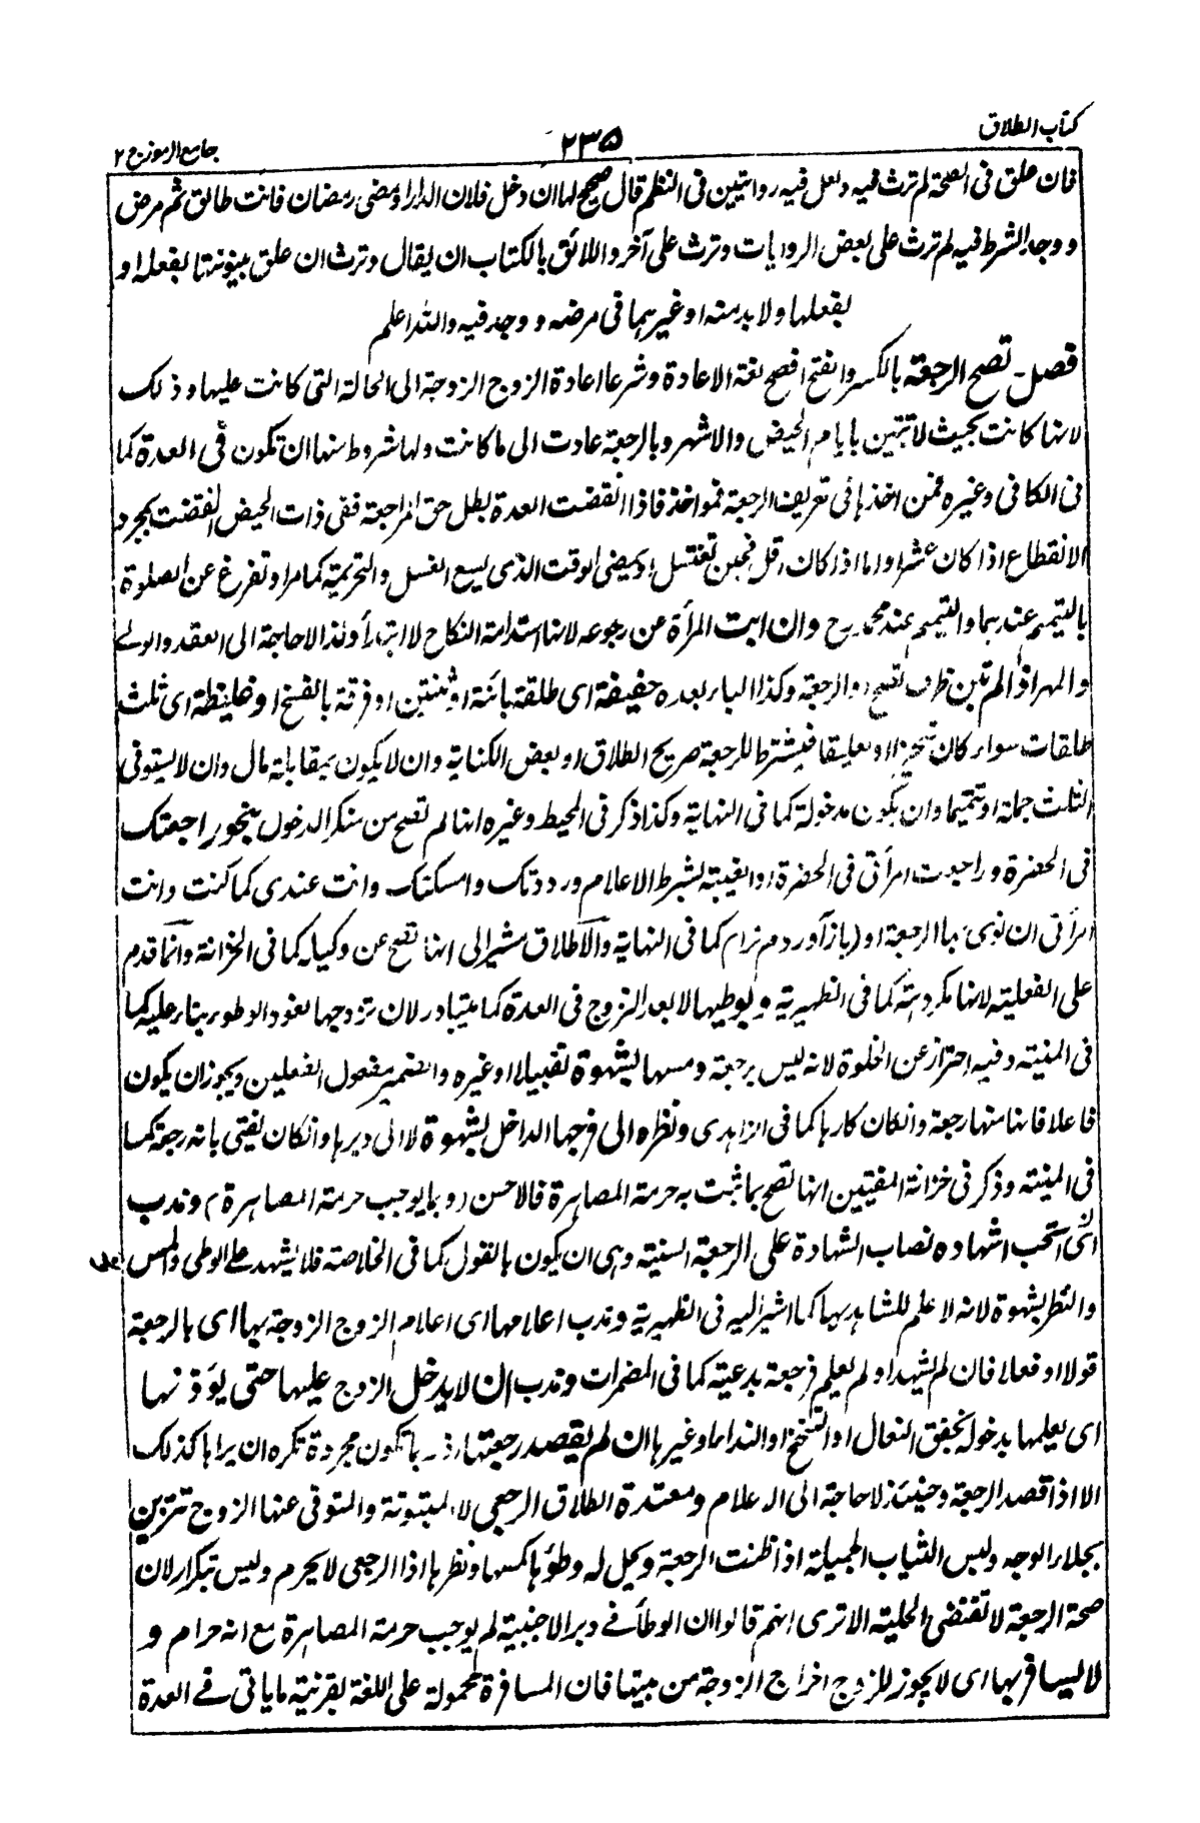 كتاب الطلاق
٢٣٥
جامع الرموز ج ٢
فان علق فى الصحة لم ترث فيه ولعل فيه روايتين فى النظم قال صحيح لها ان دخل فلان الدار او مضى رمضان فانت طالق ثم مرض
ووجد الشرط فيه لم ترث على بعض الروايات وترث على آخر واللائق بالكتاب ان يقال وترث ان علق بينونتها بفعله او
بفعلها ولا بد منه او غيرهما فى مرضه ووجد فيه والله اعلم
فصل تصح الرجعة بالكسر والفتح افصح لغة الاعادة وشرعا اعادة الزوج الزوجة الى الحالة التى كانت عليها وذلك
لانها كانت بحيث لا تبين بايام الحيض والاشهر وبالرجعة عادت الى ما كانت ولها شروط منها ان تكون فى العدة كما
فى الكافى وغيره فمن اخذها فى تعريف الرجعة فمواخذ فاذا انقضت العدة بطل حق المراجعة ففى ذات الحيض انقضت بمجرد
الانقطاع اذا كان عشرا واما اذا كان اقل فحين تغتسل او يمضى الوقت الذى يسع الغسل والتحريمة كما مر او تفرغ عن الصلوة
بالتيمم عندهما والتيمم عند محمد رح وان ابت المرأة من رجوعه لانها استدامة النكاح لا ابتداؤه ولذا لا حاجة الى العقد والولى
والمهر اذا لم تبن ظرف تصح او الرجعة وكذا الباء بعده خفيفة اى طلقة بائنة او ثنتين او فرقة بالفسخ او غليظة اى ثلث
طلقات سواء كان تنجيزا او تعليقا فيشترط للرجعة صريح الطلاق او بعض الكناية وان لا يكون بمقابلة مال وان لا يستوفى
الثلث جملة او تتميما وان تكون مدخولة كما فى النهاية وكذا ذكر فى المحيط وغيره انها لم تصح من منكر الدخول بنحو راجعتك
فى الحضرة وراجعت امرأتى فى الحضرة او الغيبة بشرط الاعلام ورددتك وامسكتك وانت عندى كما كنت وانت
امرأتى ان نوى بها الرجعة او (باز آوردم ترا) كما فى النهاية والاطلاق مشير الى انها تصح عن وكيله كما فى الخزانة وانما قدم
على الفعلية لانها مكروهة كما فى الظهيرية وبوطيها لا بعد التزوج فى العدة كما يتبادر لان تزوجها لغو والوطء بناء عليه كما
فى المنية وفيه احتراز عن الخلوة لانه ليس برجعة ومسها بشهوة تقبيلا او غيره والضمير مفعول الفعلين ويجوز ان يكون
فاعلا فانها منها رجعة وان كان كارها كما فى الزاهدى ونظره الى فرجها الداخل بشهوة لا الى دبرها وان كان يفتى بانه رجعة كما
فى المنية وذكر فى خزانة المفتيين انها تصح بما ثبت به حرمة المصاهرة فالاحسن (وبما يوجب حرمة المصاهرة) وندب
اى استحب اشهاده نصاب الشهادة على الرجعة السنية وهى ان يكون بالقول كما فى الخلاصة فلا يشهد على الوطى والمس
والنظر بشهوة لانه لا علم للشاهد بها كما اشير اليه فى الظهيرية وندب اعلامها اى اعلام الزوج الزوجة بها اى بالرجعة
قولا او فعلا فان لم يشهد او لم يعلم فرجعة بدعية كما فى المضمرات وندب ان لا يدخل الزوج عليها حتى يؤذنها
اى يعلمها بدخوله بخفق النعال او التنحنح او النداء او غيرها ان لم يقصد رجعتها اذ ربما تكون مجردة تكره ان يراها كذلك
الا اذا قصد الرجعة وحينئذ لا حاجة الى الاعلام ومعتدة الطلاق الرجعى لا المبتوتة والمتوفى عنها الزوج تتزين
بجلاء الوجه ولبس الثياب الجميلة اذا ظنت الرجعة ويحل له وطؤها كمسها ونظرها اذ الرجعى لا يحرم وليس بتكرار لان
صحة الرجعة لا تقتضى الحلية الا ترى انهم قالوا ان الوطأ فى دبر الاجنبية لم يوجب حرمة المصاهرة مع انه حرام و
لا يسافر بها اى لا يجوز للزوج اخراج الزوجة من بيتها فان المسافرة محمولة على اللغة بقرينة ما ياتى فى العدة